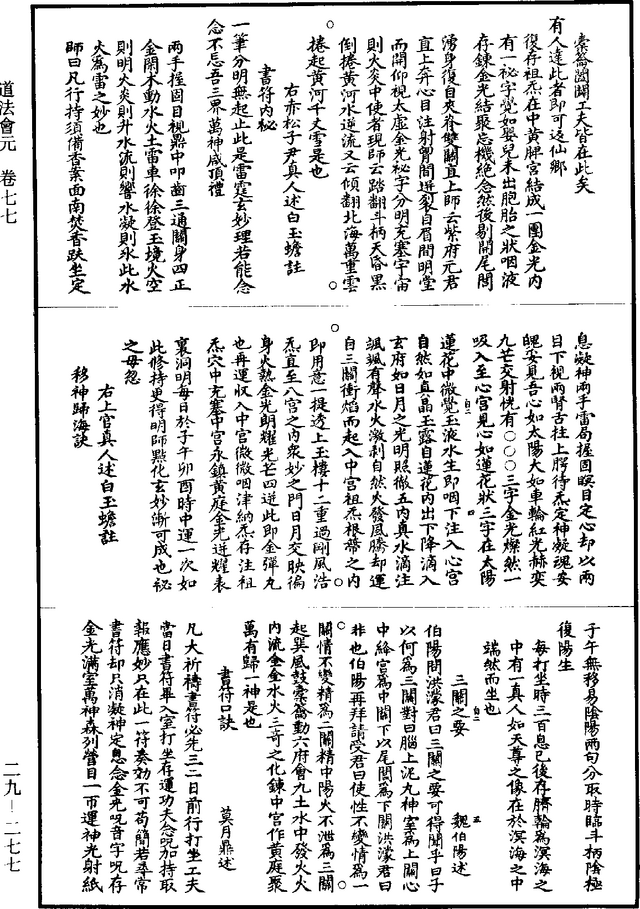 道法會元　卷七七
二九─二七七
橐籥闔闢工夫皆在此矣
有人達此者即可返仙鄉
復存祖炁在中黃脾宮結成一團金光內
有一祕字覺如嬰兒未出胞胎之狀咽液
存鍊金光結聚忘機絕念然後剔開尾閭
湧身復自夾脊雙關直上師云紫府元君
直上奔心目注射胷間迸裂自眉間明堂
而開仰視太虛金光祕字分明充塞宇宙
則火炎中使者現師云踏翻斗柄天昏黑
倒捲黃河水逆流又云傾翻北海萬重雲
捲起黃河千丈雪是也
右亦松子尹真人述白玉蟾註
書符內祕
一筆分明無起止此是雷霆玄妙理若能念
念不忘吾三界萬神咸頂禮
兩手握固目視鼎中叩齒三通關身四正
金關木動水火土雷車徐徐登玉境火空
則明火炎則升水流則響水凝則氷此水
火為雷之妙也
師曰凡行持須備香案面南焚香趺坐定
息凝神兩手雷局握固瞑目定心却以兩
目下視兩腎舌拄上腭待炁定神凝魂安
魄妥見吾心如太陽大如車輪紅光赫奕
九芒交射恍有○○○三字金光燦然一
吸入至心宮見心如蓮花狀三字在太陽
蓮花中微覺玉液水生即咽下注入心宮
自然如真晶玉露自蓮花內出下降滴入
玄府如日月之光明照徹五內真水滴注
颯颯有聲水火激剝自然火發風騰却運
自三關衝焰而起入中宮祖炁根蔕之內
即用意一提透上玉樓十二重過剛風浩
炁直至八宮之內衆妙之門日月交映徧
身火熱金光朗耀光芒四迸此即金彈丸
也再運收入中宮微微咽津納炁存注祖
炁穴中充塞中宮永鎮黃庭金光迸耀表
裏洞明每日於子午卯酉時中運一次如
此修持更得明師點化玄妙漸可成也祕
之毋忽
右上官真人述白玉蟾註
移神歸海訣
子午無移易陰陽兩句分取時臨斗柄陰極
復陽生
每打坐時三百息已後存臍輪為溟海之
中有一真人如天尊之像在於溟海之中
端然而坐也
三關之要
魏伯陽述
伯陽問洪濛君曰三關之要可得聞乎曰子
以何為三關對曰腦上泥九神室為上關心
中絳宮為中關下以尾閭為下關洪濛君曰
非也伯陽再拜請受君曰使性不變情為一
關情不變精為二關精中陽火不泄為三關
起巽風鼓橐籥動六府會九土水中發火火
內流金金水火三奇之化鍊中宮作黃庭聚
萬有歸一神是也
書符口訣
莫月鼎述
凡大祈禱書符必先三二日前行打坐工夫
當日書符畢入室打坐存運功夫念呪加持取
報應妙只在此一符奏効不可苟簡若尋常
書符却只消凝神定息念金光呪音字呪存
金光滿室萬神森列瞥目一帀運神光射紙